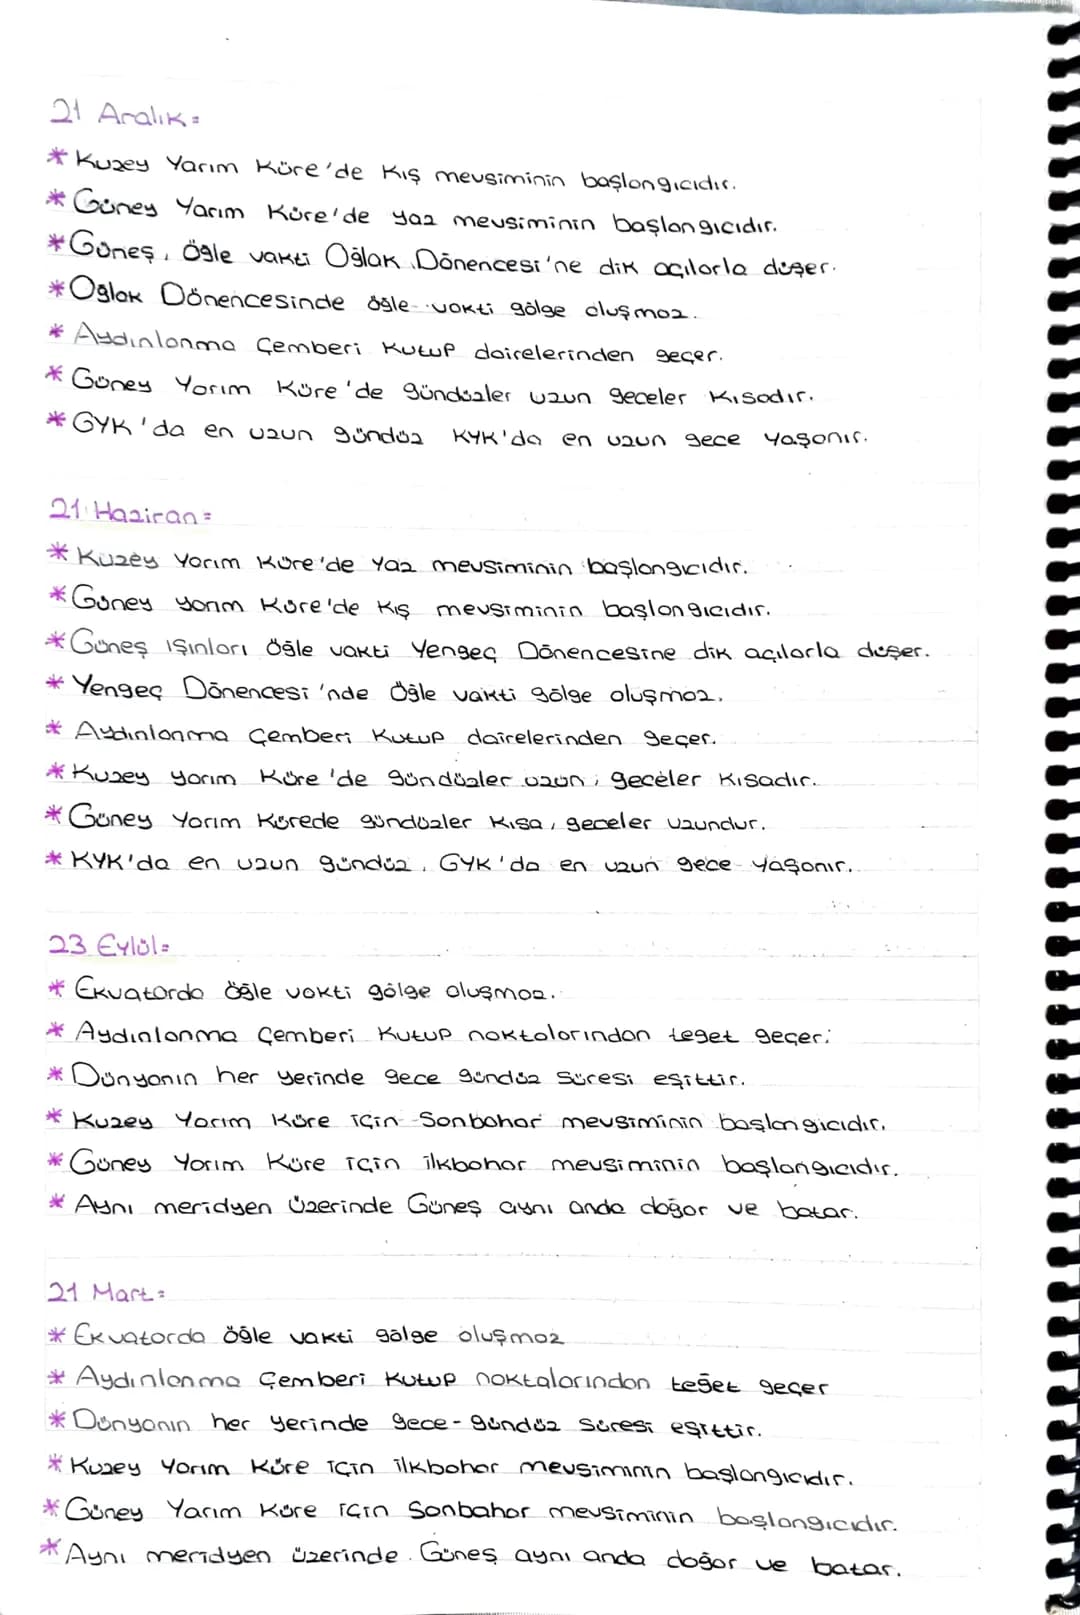 21 Aralık=
* Kuzey Yarım Küre'de Kış mevsiminin başlangıcıdır.
* Güney Yarım Küre'de yaz mevsiminin başlangıcıdır.
* Güneş, Öğle vakti Oğlak Dönencesi'ne dik açılarla düşer.
* Oğlak Dönencesinde öğle vakti gölge oluşmaz.
* Aydınlanma Çemberi Kutup dairelerinden geçer.
* Güney Yarım Küre'de gündüzler uzun geceler Kısadır.
* GYK'da en uzun gündüz KYK'da en uzun gece yaşanır.
21 Haziran=
* Kuzey Yarım Küre'de Yaz mevsiminin başlangıcıdır.
* Güney yarım Küre'de Kış mevsiminin başlangıcıdır.
* Güneş ışınları Öğle vakti Yengeç Dönencesine dik açılarla düşer.
* Yengeç Dönencesi'nde Öğle vakti gölge oluşmaz.
* Aydınlanma Çemberi Kutup dairelerinden geçer.
* Kuzey yarım Küre'de gündüzler uzun, geceler Kısadır.
* Güney Yarım Kürede gündüzler Kısa, geceler uzundur.
* KYK'da en uzun gündüz, GYK'da en uzun gece yaşanır.
23 Eylül=
* Ekvatorda öğle vakti gölge oluşmaz.
* Aydınlanma Çemberi Kutup noktalarından teget geçer.
* Dünyanın her yerinde gece gündüz süresi eşittir.
* Kuzey Yarım Küre için Sonbahar mevsiminin başlangıcıdır.
* Güney Yarım Küre için ilkbahar mevsiminin başlangıcıdır.
* Aynı meridyen üzerinde Güneş aynı anda doğar ve batar.
21 Mart=
* Ekvatorda öğle vakti gölge oluşmaz
* Aydınlanma Çemberi Kutup noktalarından teğet geçer
* Dünyanın her yerinde gece-gündüz süresi eşittir.
* Kuzey Yarım Küre için ilkbahar mevsiminin başlangıcıdır.
* Güney Yarım Küre için Sonbahar mevsiminin başlangıcıdır.
* Aynı meridyen üzerinde Güneş aynı anda doğar ve batar.